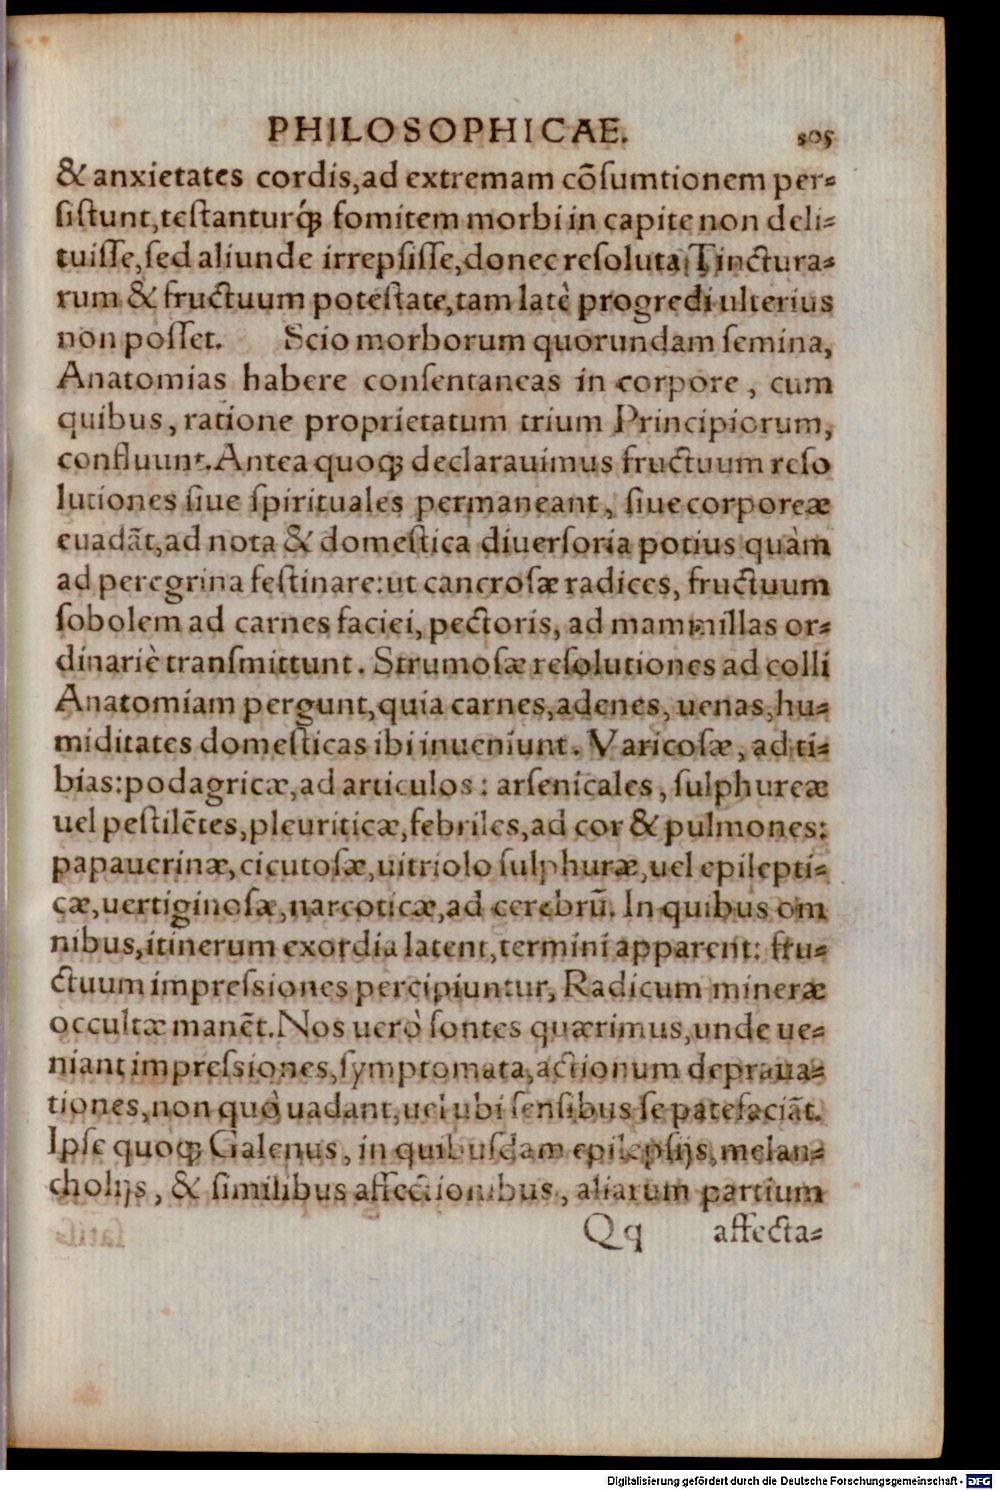 PHILOSOPHICAE. 305
& anxietates cordis, ad extremam cõſumtionem per⸗
ſiſtunt, teſtanturq́ꝫ fomitem morbi in capite non deli⸗
tuiſſe, ſed aliunde irrepſiſſe, donec reſoluta Tinctura⸗
rum & fructuum poteſtate, tam latè progredi ulterius
non poſſet. Scio morborum quorundam ſemina,
Anatomias habere conſentaneas in corpore, cum
quibus, ratione proprietatum trium Principiorum,
confluunt. Antea quoqꝫ declarauimus fructuum reſo
lutiones ſiue ſpirituales permaneant, ſiue corporeæ
euadãt, ad nota & domeſtica diuerſoria potius quàm
ad peregrina feſtinare: ut cancroſæ radices, fructuum
ſobolem ad carnes faciei, pectoris, ad mammillas or⸗
dinariè tranſmittunt. Strumoſæ reſolutiones ad colli
Anatomiam pergunt, quia carnes, adenes, uenas, hu⸗
miditates domeſticas ibi inueniunt. Varicoſæ, ad ti⸗
bias: podagricæ, ad articulos: arſenicales, ſulphureæ
uel peſtilẽtes, pleuriticæ, febriles, ad cor & pulmones:
papauerinæ, cicutoſæ, uitriolo ſulphuræ, uel epilepti⸗
cæ, uertiginoſæ, narcoticæ, ad cerebrũ. In quibus om
nibus, itinerum exordia latent, termini apparent: fru⸗
ctuum impreſsiones percipiuntur, Radicum mineræ
occultæ manẽt. Nos uerò fontes quærimus, unde ue⸗
niant impreſsiones, ſymptomata, actionum depraua⸗
tiones, non quò uadant, uel ubi ſenſibus ſe patefaciãt.
Ipſe quoqꝫ Galenus, in quibuſdam epilepſijs, melan⸗
cholijs, & ſimilibus affectionibus, aliarum partium
Qq affecta⸗
Digitalisierung gefördert durch die Deutsche Forschungsgemeinschaft - DFG